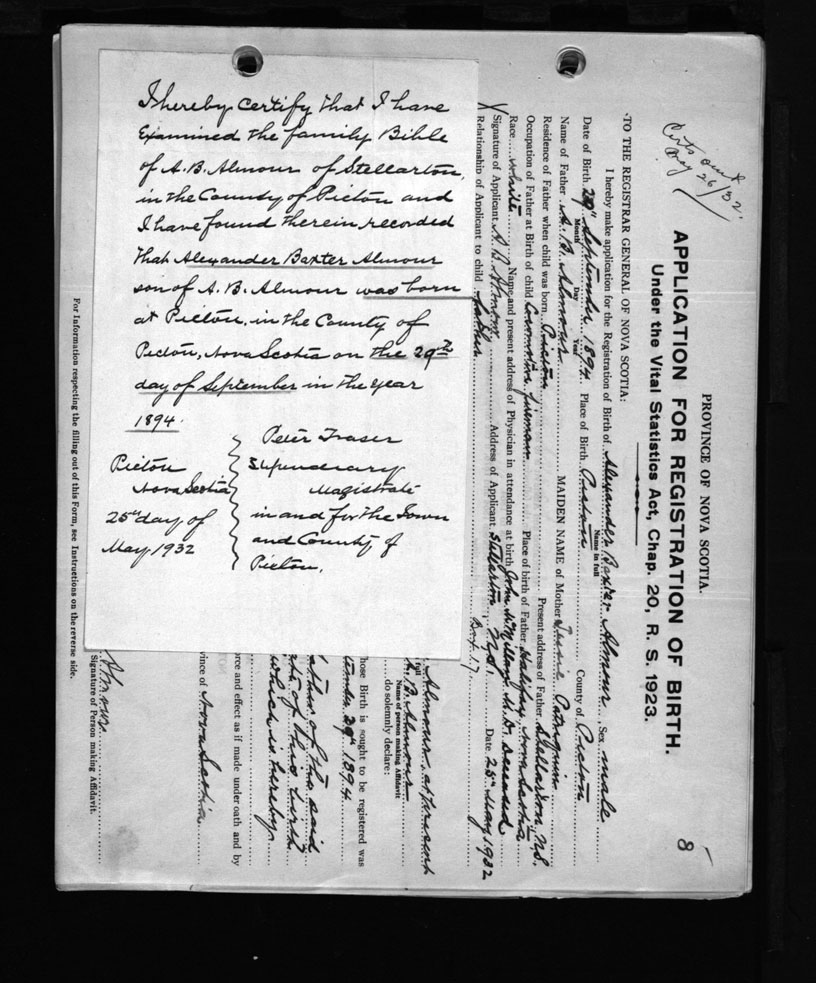 I hereby certify that I have
Examined the family Bible
of A. B. Almour of Stellarton,
in the County of Pictou and
I have found therein recorded
that Alexander Baxter Almour
son of A. B. Almour was born
at Pictou, in the County of
Pictou, Nova Scotia on the 29th
day of September in the year
1894.
Peter Fraser
Stipendiary
Magistrate
in and for the Town
and County of
Pictou.
Pictou
Nova Scotia
25th day of
May 1932
8
PROVINCE OF NOVA SCOTIA.
APPLICATION FOR REGISTRATION OF BIRTH.
Under the Vital Statistics Act, Chap. 20, R. S. 1923.
26/32.
TO THE REGISTRAR GENERAL OF NOVA SCOTIA:
I hereby make application for the Registration of Birth of Alexander Baxter Almour, Sex male
Name in full
Date of Birth 29th September 1894 Place of Birth Pictou County of Pictou
Month Day Year
Name of Father A. B. Almour MAIDEN NAME of Mother Patriquin
Residence of Father when child was born Pictou Present address of Father Stellarton, N.S.
Occupation of Father at Birth of child Locomotive fireman Place of birth of Father Halifax Nova Scotia
Race white Name and present address of Physician in attendance at birth John M. D. Deceased
Signature of Applicant A. B. Almour Address of Applicant Stellarton, N.S. Date 25th May 1932
Relationship of Applicant to child father Box 17
Almour, at present
full
A. B. Almour
Name of person making Affidavit
do solemnly declare:
hose Birth is sought to be registered was
29th 1894
father of the said
of this birth
which is hereby
orce and effect as if made under oath and by
vince of Nova Scotia
Almour
Signature of Person making Affidavit.
For Information respecting the filling out of this Form, see Instructions on the reverse side.